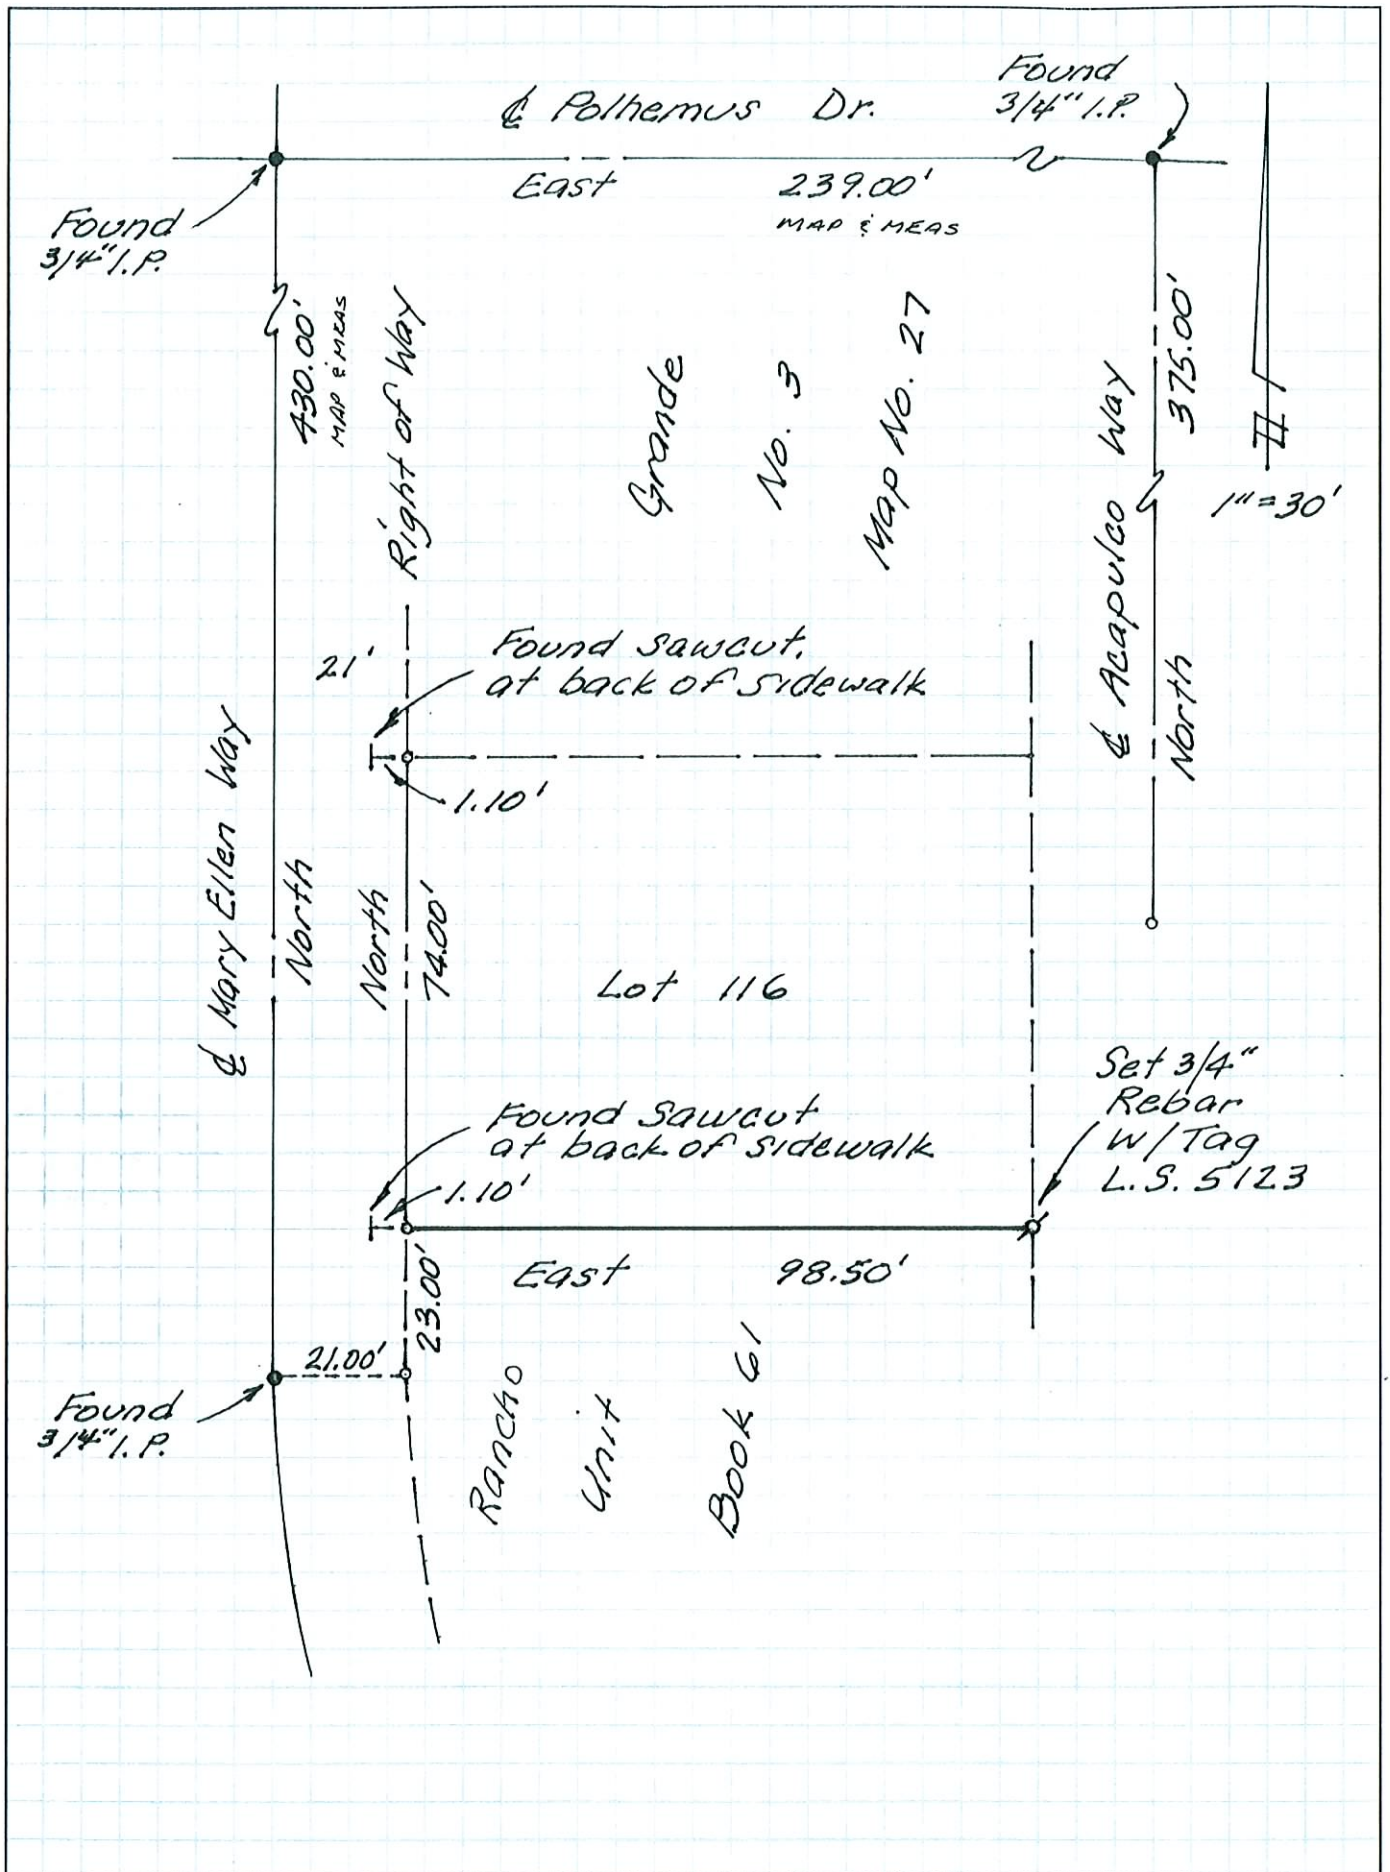 ℄ Polhemus Dr.
Found
3/4" I.P.
East 239.00'
MAP & MEAS
Found
3/4" I.P.
430.00'
MAP & MEAS
Right of Way
Grande
No. 3
Map No. 27
℄ Acapulco Way
375.00'
North
1"=30'
21'
Found Sawcut,
at back of sidewalk
1.10'
℄ Mary Ellen Way
North
North
74.00'
Lot 116
Set 3/4"
Rebar
W/Tag
L.S. 5123
Found Sawcut
at back of sidewalk
1.10'
East 98.50'
23.00'
21.00'
Found
3/4" I.P.
Rancho
Unit
Book 61